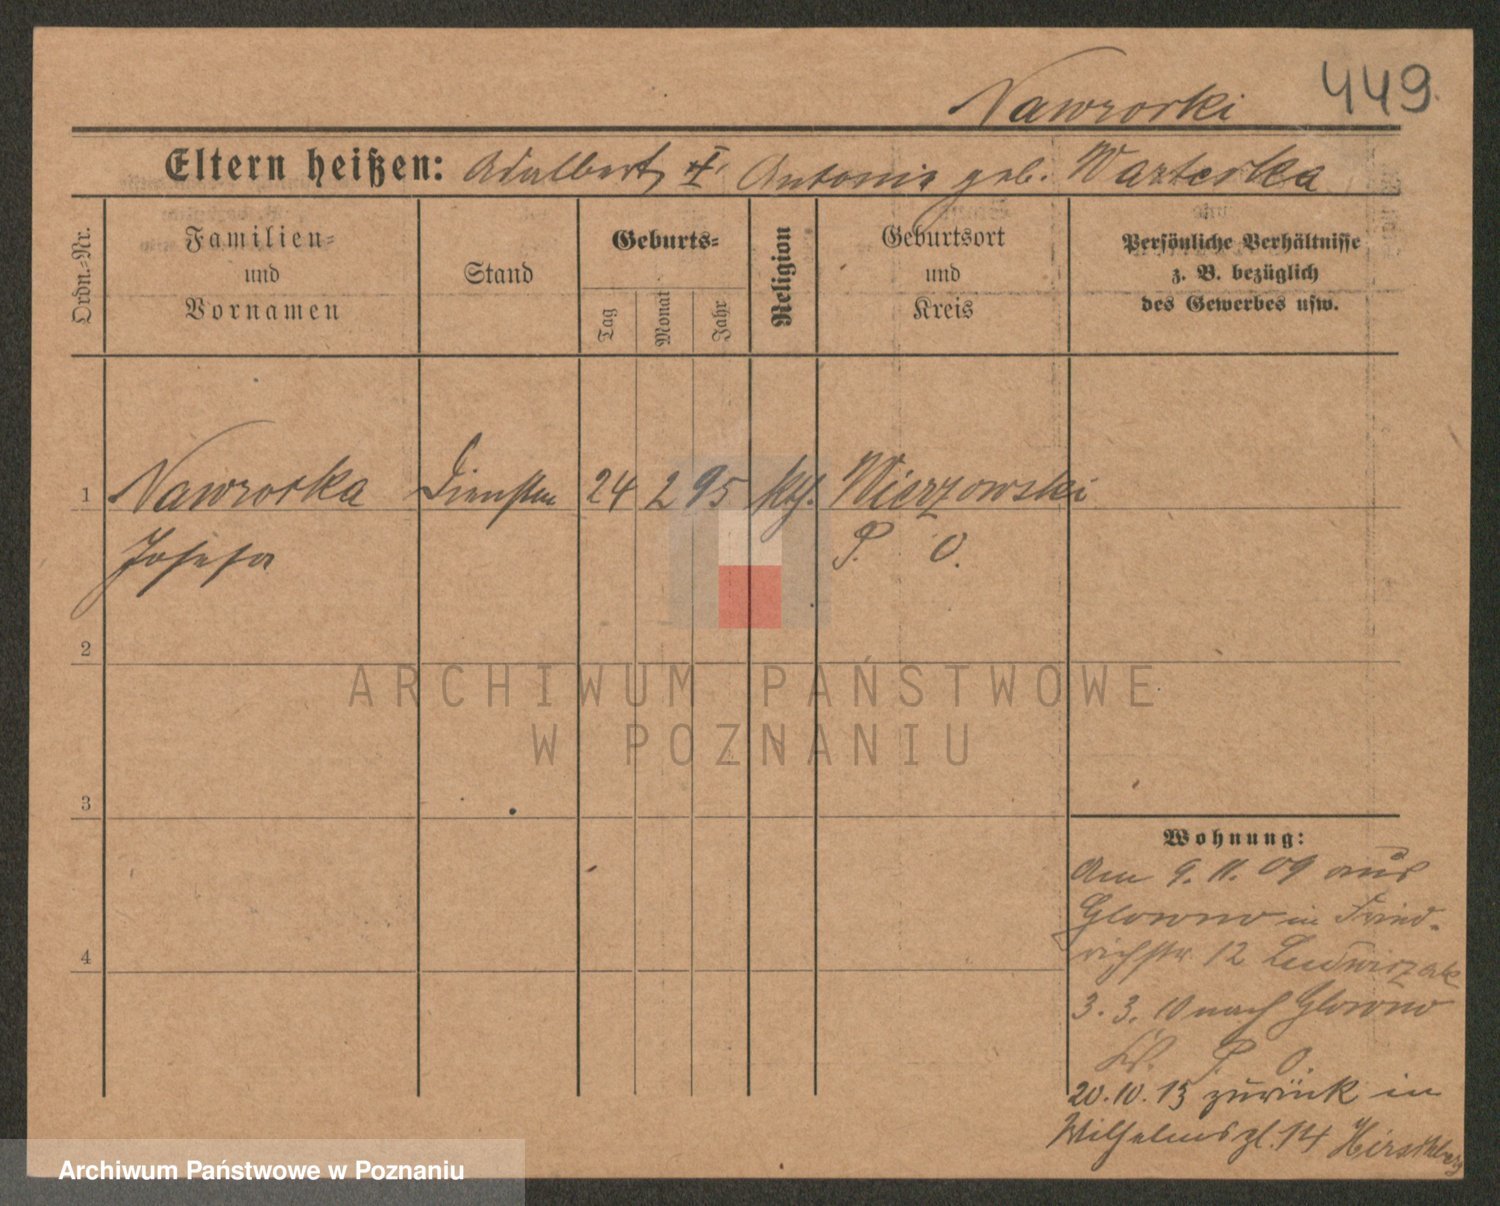 449.
Nawrocki
Eltern heißen: Adalbert u. Antonie geb.
Ordn.-Nr.
Familien-
und
Vornamen
Stand
Geburts-
Tag
Monat
Jahr
Religion
Geburtsort
und
Kreis
Persönliche Verhältnisse
z. B. bezüglich
des Gewerbes usw.
1 Nawrocka 24 2 95 kth.
Josefa P. O.
2
ARCHIWUM PAŃSTWOWE
W POZNANIU
3
4
Wohnung:
Am 9. 11. 09 aus
Glowno in Fried-
richstr 12 Ludwiczak
3. 3. 10 nach Glowno
P. O.
20. 10. 15 zurück in
Wilhelmspl. 14 Hirschberg
Archiwum Państwowe w Poznaniu